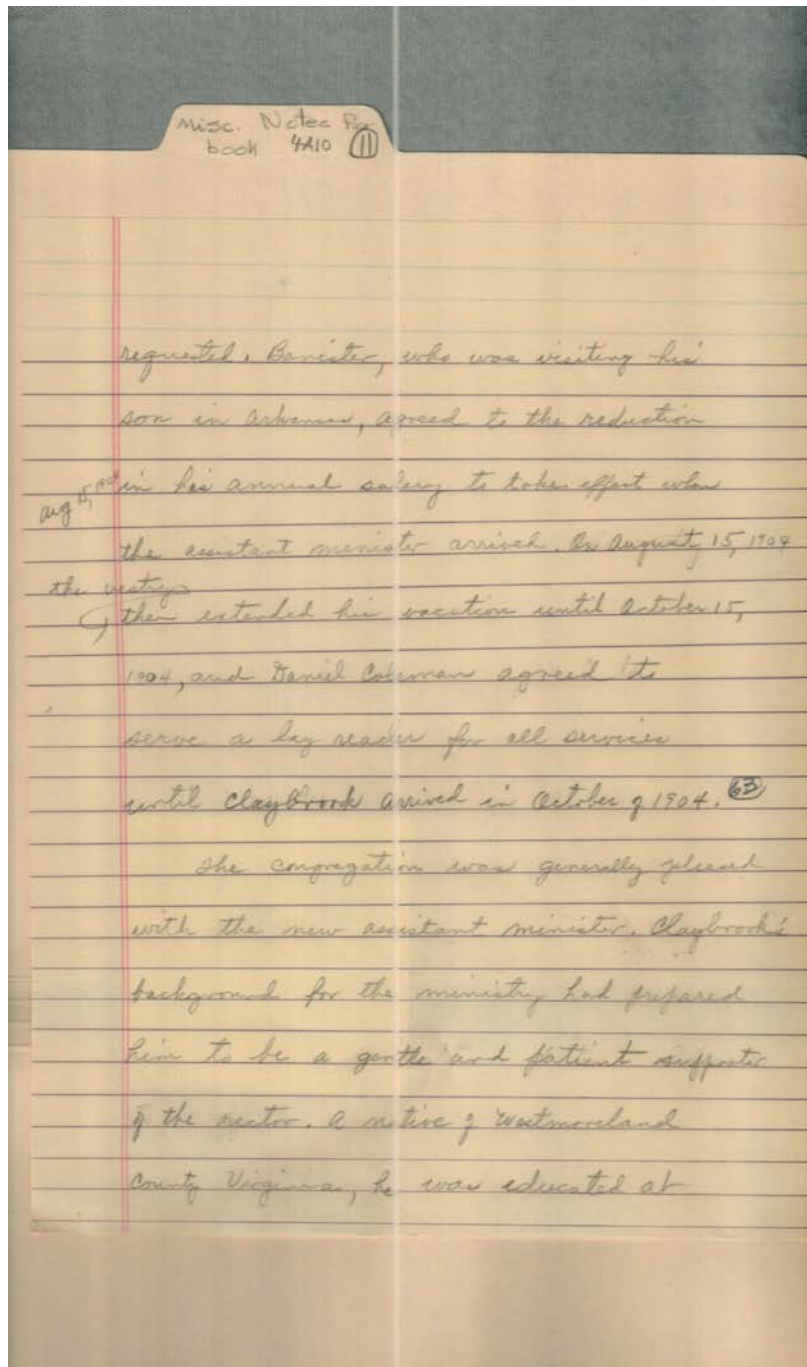 Misc. Notes For
book 4A10 11
requested. Banister, who was visiting his
son in Arkansas, agreed to the reduction
in his annual salary to take effect when
Aug 15, 1904
the assistant minister arrived. On August 15, 1904
the vestry
then extended his vacation until October 15,
1904, and Daniel Coleman agreed to
serve a lay reader for all services
until Claybrook arrived in October of 1904. 63
The congregation was generally pleased
with the new assistant minister. Claybrook's
background for the ministry had prepared
him to be a gentle and patient supporter
of the rector. A native of Westmoreland
County Virginia, he was educated at